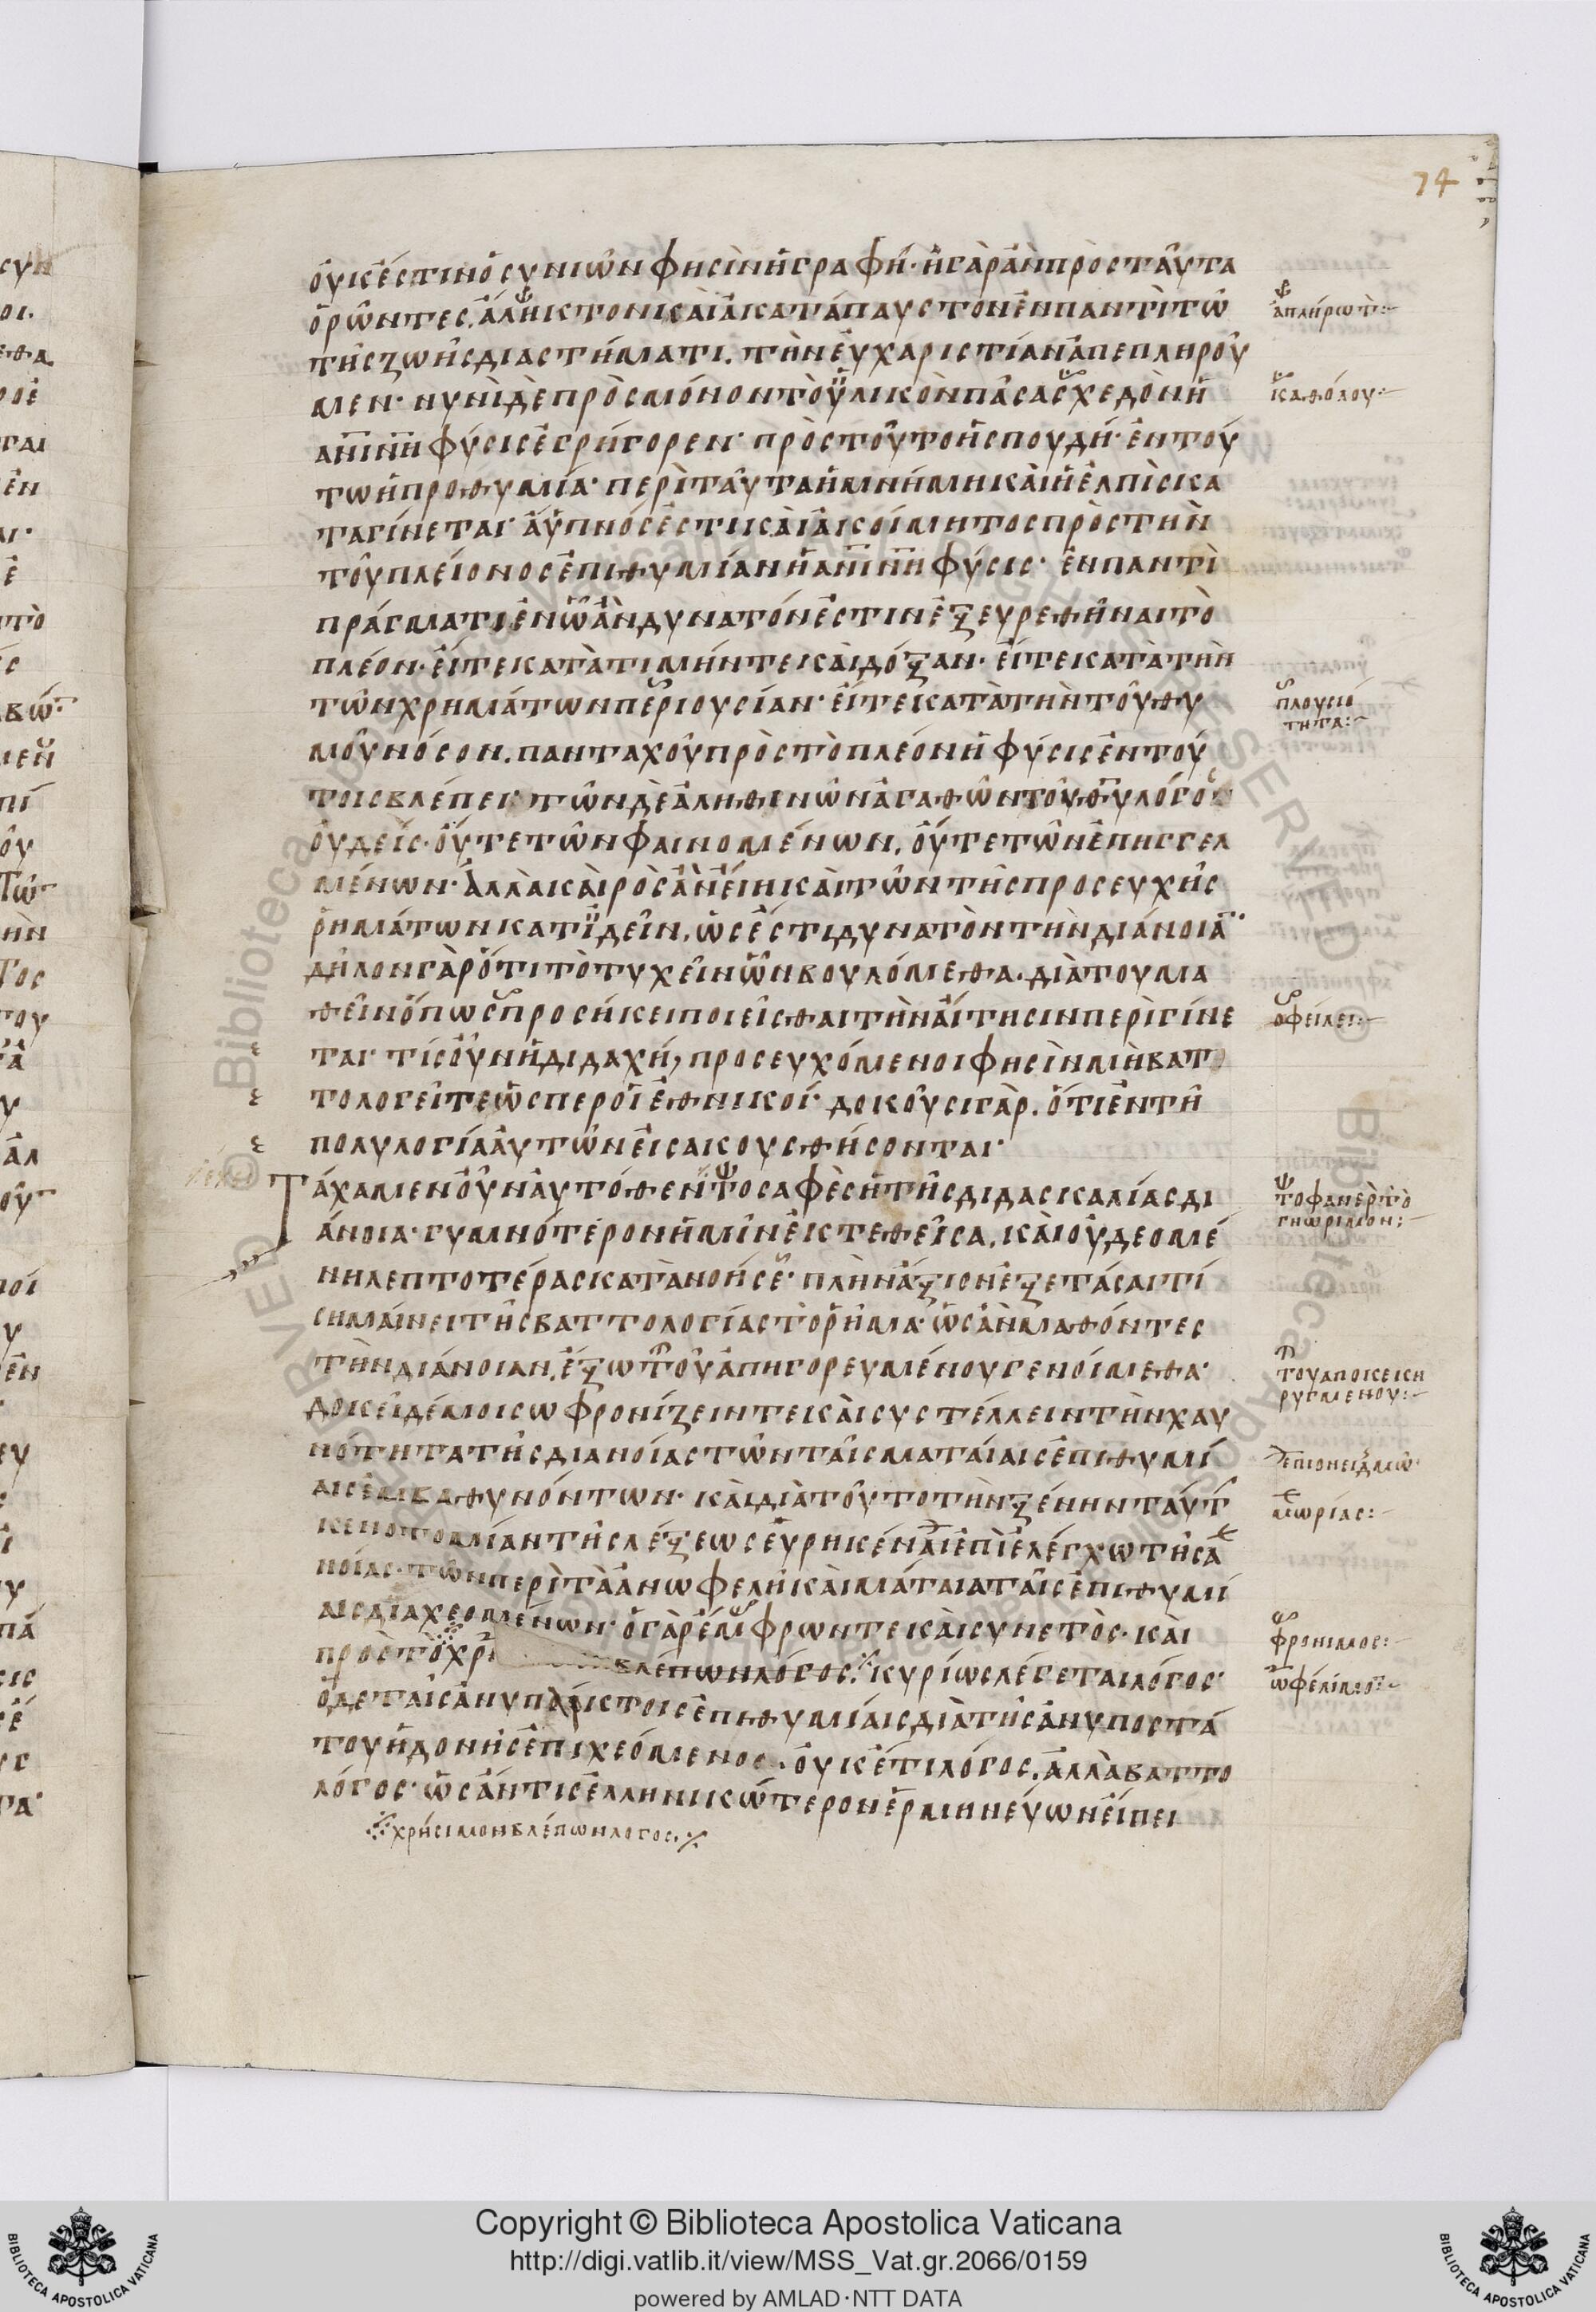 74
οὐκ ἔστιν ὁ συνιὼν φησὶν ἡ γραφή· ἢ γὰρ ἂν πρὸς ταῦτα
ὁρῶντες, ἄληκτον καὶ ἀκατάπαυστον ἐν παντὶ τῶ
ἀπλήρωτ:
τῆς ζωῆς διαστήματι. τὴν εὐχαριστίαν ἀπεπληροῦ
μεν· νυνὶ δὲ πρὸς μόνον τὸ ϋλικὸν πᾶσα σχεδὸν ἡ
καθόλου:
ανινη φύσις ἐγρήγορεν· πρὸς τοῦτο ἡ σπουδή· ἐν τού
τω ἡ προθυμία· περὶ ταῦτα ἡ μνήμη καὶ ἡ ἐλπὶς κα
ταγίνεται· ἄϋπνός ἐστι καὶ ἀκοίμητος πρὸς τὴν
τοῦ πλείονος ἐπιθυμίαν ἡ ανινη φύσις· ἐν παντὶ
πράγματι ἐν ὧ ἂν δυνατόν ἐστιν ἐξευρεθῆναι τὸ
πλέον· εἴτε κατὰ τιμήν τε καὶ δόξαν· εἴτε κατὰ τὴν
τῶν χρημάτων περιουσίαν· εἴτε κατὰ τὴν τοῦ θυ
πλουσιό
τητα:
μοῦ νόσον. πανταχοῦ πρὸς τὸ πλέον ἡ φύσις ἐν τού
τοις βλέπει· τῶν δὲ ἀληθινῶν ἀγαθῶν τοῦ θυ λόγος
οὐδείς· οὔτε τῶν φαινομένων, οὔτε τῶν ἐπηγγελ
μένων· ἀλλὰ καιρὸς ἂν εἴη καὶ τῶν τῆς προσευχῆς
ῥημάτων κατϊδεῖν, ὡς ἐστι δυνατὸν τὴν διάνοια
δῆλον γὰρ ὅτι τὸ τυχεῖν ὧν βουλόμεθα. διὰ τοῦ μα
θεῖν ὅπως προσήκει ποιεῖσθαι τὴν αἴτησιν περιγίνε
ὀφείλει:
ται· τίς οὖν ἡ διδαχή, προσευχόμενοι φησὶν μὴ βατ
τολογεῖτε ὥσπερ οἱ ἐθνικοί· δοκοῦσι γὰρ. ὅτι ἐν τῆ
πολυλογία αὐτῶν εἰσακουσθήσονται·
Τάχα μὲν οὖν αὐτόθεν τὸ σαφὲς ἡ τῆς διδασκαλίας δι
τὸ φανερὸν τὸ
γνώριμον:
άνοια· γυμνότερον ἡμῖν ἐκτεθεῖσα, καὶ οὐδεομέ
νη λεπτοτέρας κατανοήσε· πλὴν ἄξιον ἐξετάσαι τί
σημαίνει τῆς βαττολογίας τὸ ῥῆμα· ὡς ἂν μαθόντες
τὴν διάνοιαν, ἔξω τοῦ ἀπηγορευμένου γενοίμεθα·
τοῦ αποκεκη
ρυγμενου:
δοκεῖ δέ μοι σωφρονίζειν τε καὶ συστέλλειν τὴν χαυ
νότητα τῆς διανοίας τῶν ταῖς ματαίαις ἐπιθυμί
αις ἐμβαθυνόντων· καὶ διὰ τοῦτο τὴν ξένην ταύτ
μωρίας:
καινοτομίαν τῆς λέξεως εὑρηκέναι ἐπὶ ἐλέγχω τῆς α
νοίας· τῶν περὶ τὰ ἀνωφελῆ καὶ μάταια ταῖς ἐπιθυμί
αις διαχεομένων· ὁ γὰρ ἔμφρων τε καὶ συνετὸς· καὶ
φρονιμος:
πρὸς τὸ χρ βλέπων λόγος. κυρίως λέγεται λόγος·
ὠφέλιμο:
ὁ δε ταῖς ἀνυπάρκτοις ἐπιθυμίαις διὰ τῆς ἀνυποστά
του ἡδονῆς ἐπιχεόμενος, οὐκ ἔτι λόγος, ἀλλὰ βαττο
λόγος· ὡς ἄν τις ἑλληνικώτερον ἑρμηνεύων εἴπει
χρήσιμον βλέπων λογος.
Copyright © Biblioteca Apostolica Vaticana
http://digi.vatlib.it/view/MSS_Vat.gr.2066/0159
powered by AMLAD·NTT DATA
BIBLIOTECA APOSTOLICA VATICANA
BIBLIOTECA APOSTOLICA VATICANA